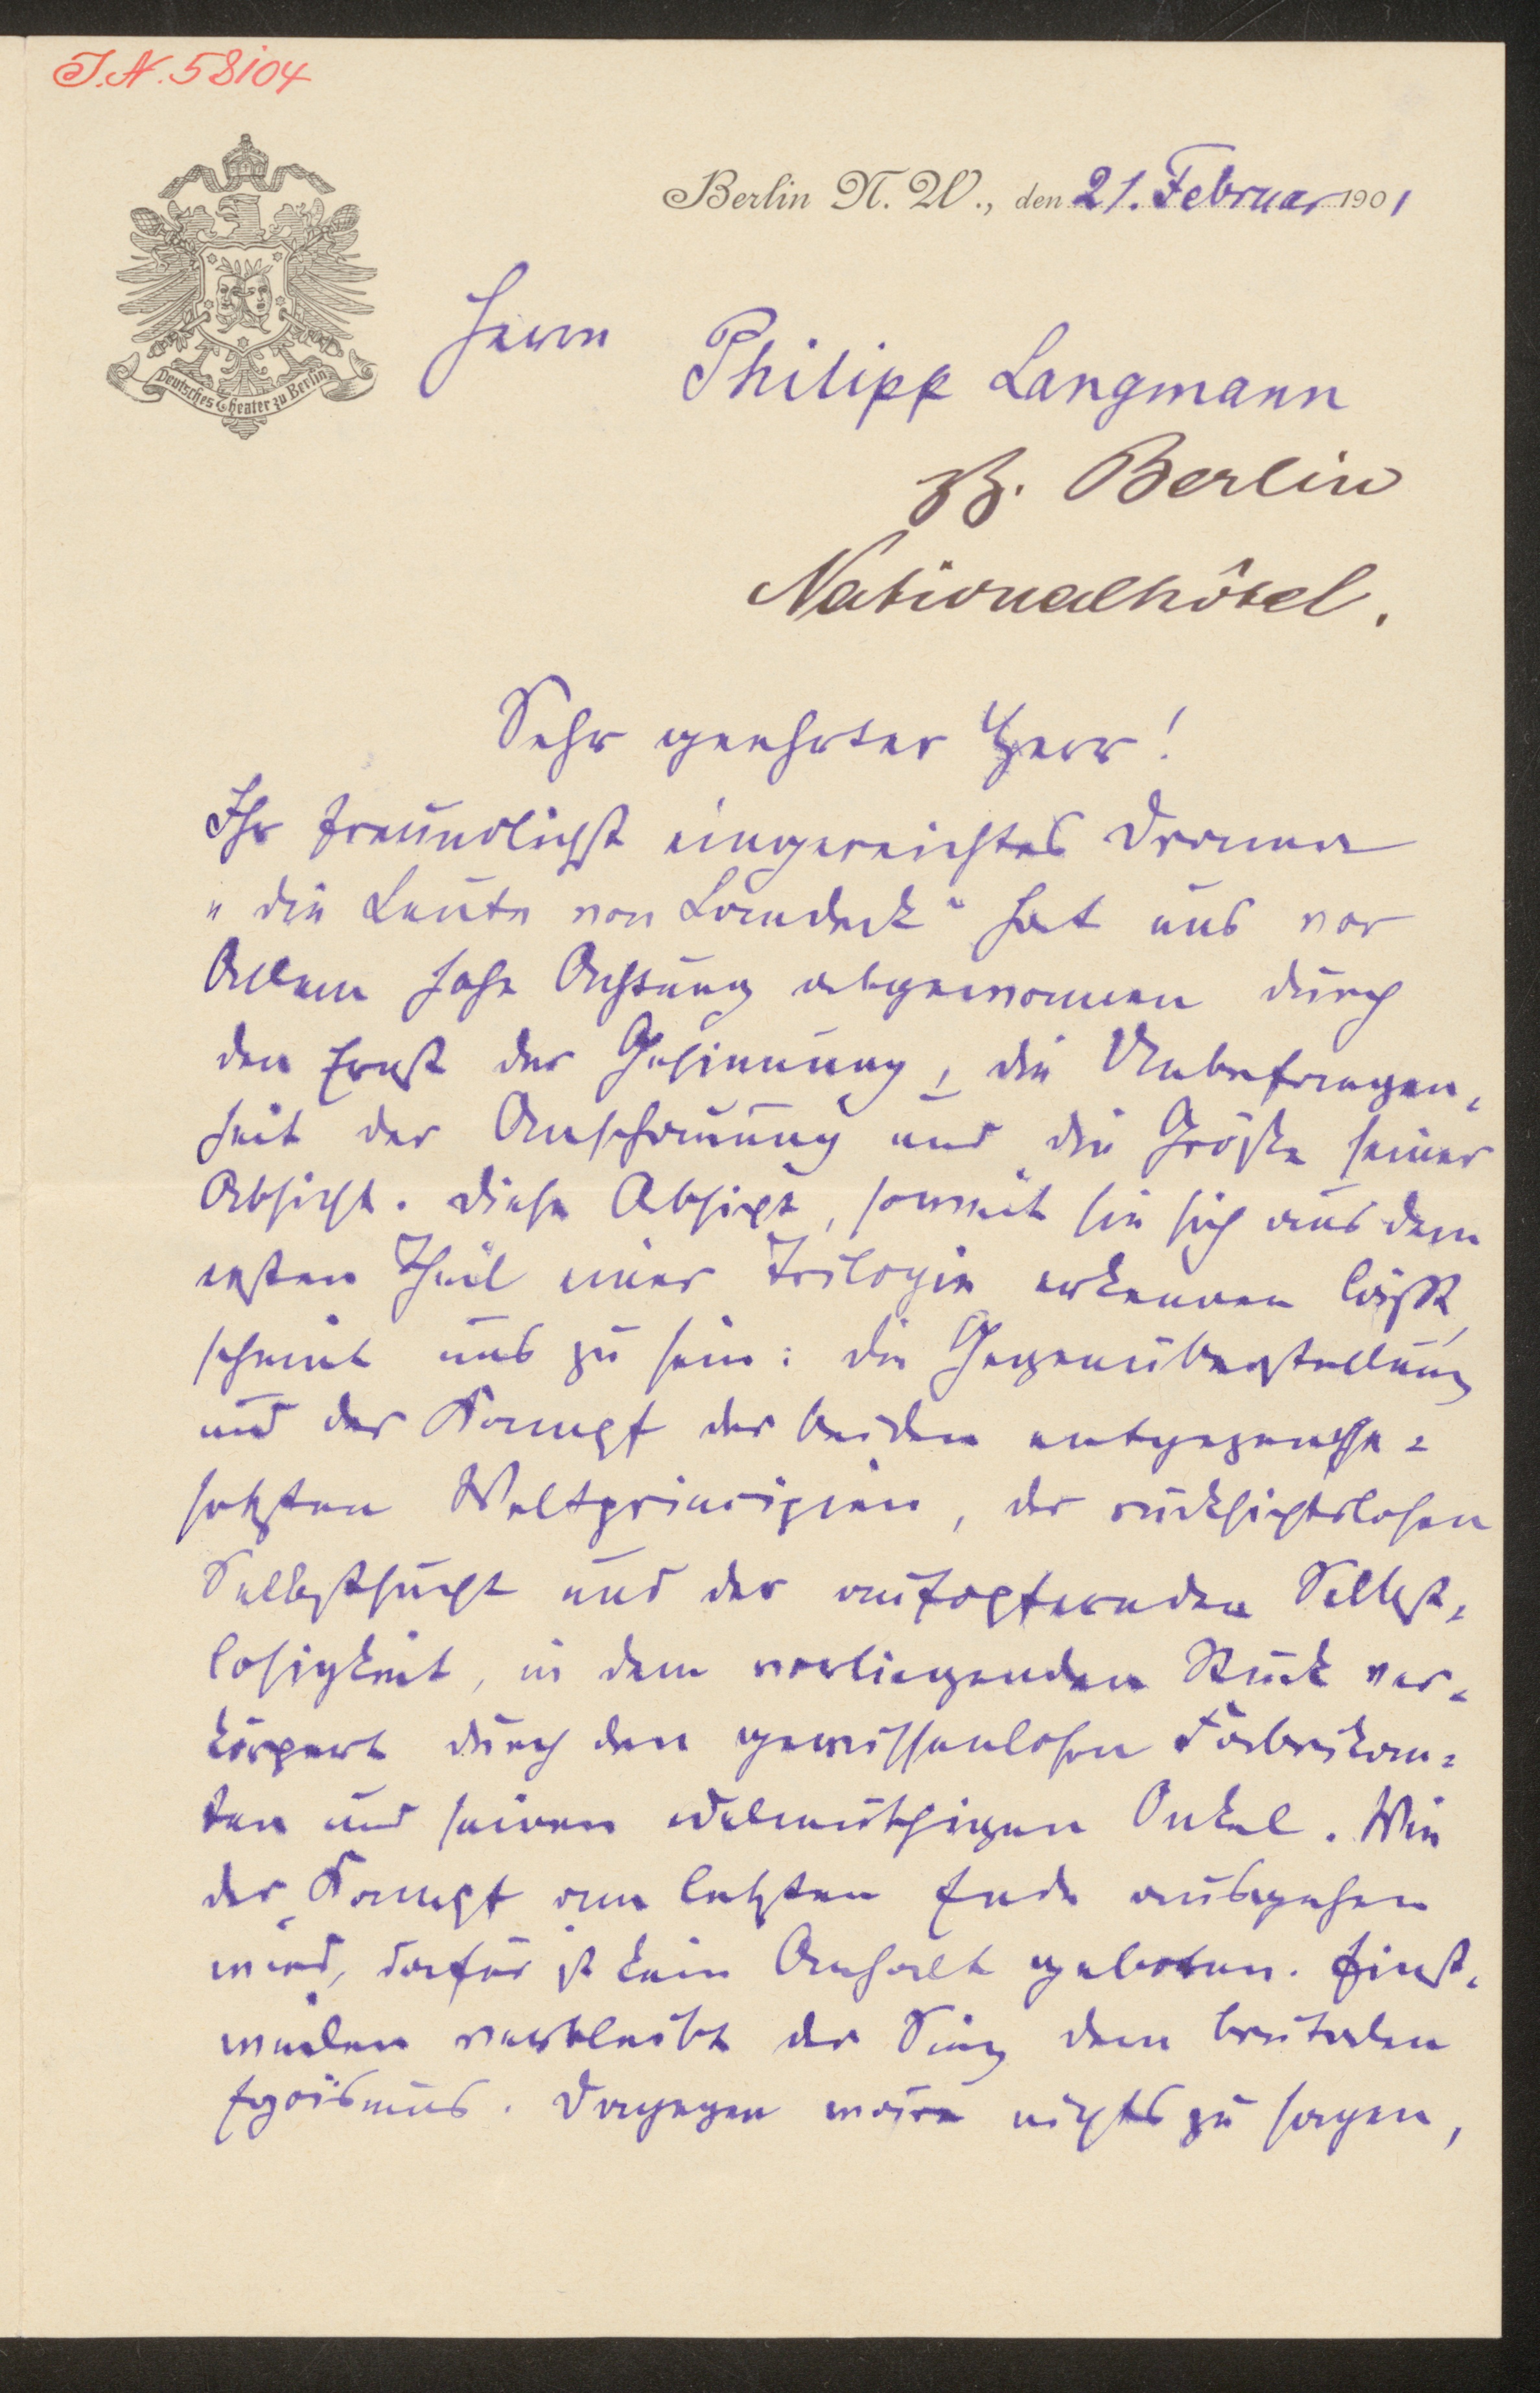 J.N. 58104
Deutsches Theater zu Berlin
Berlin N. W., den 21. Februar 1901
Herrn
Philipp Langmann
zZ. Berlin
Nationalhôtel.
Sehr geehrter Herr!
Ihr freundlichst eingereichtes Drama
„die Leute von Landeck“ hat uns vor
Allem hohe Achtung abgewonnen durch
den Ernst der Gesinnung, die Unbefangen-
heit der Anschauung und die Größe seiner
Absicht. Diese Absicht, soweit sie sich aus dem
ersten Theil einer Trilogie erkennen läßt,
scheint uns zu sein: die Gegenüberstellung
und der Kampf der beiden entgegenge-
setzten Weltprincipien, der rücksichtslosen
Selbstsucht und der aufopfernden Selbst-
losigkeit, in dem vorliegenden Stück ver-
körpert durch den gewissenlosen Fabrikan-
ten und seinen edelmüthigen Onkel. Wie
der Kampf am letzten Ende ausgehen
wird, dafür ist kein Anhalt geboten. Einst-
weilen verbleibt der Sieg dem brutalen
Egoismus. Dagegen wäre nichts zu sagen,